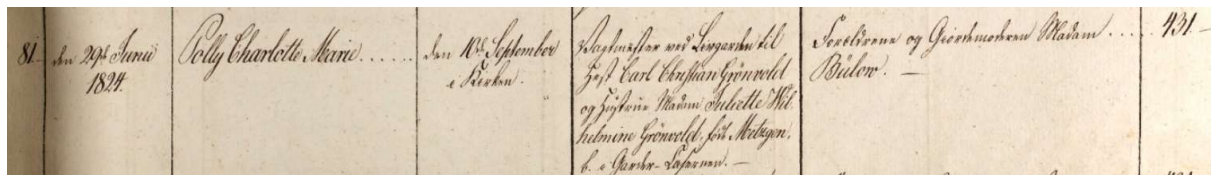 81.
den 29de Junii
1824.
Polly Charlotte Marie. . . . . .
den 10de September
i Kirken.
Vagtmester ved Livgarden til
Hest Carl Christian Grönvold
og Hustrue Madam Juliette Wil-
helmine Grönvold, födt Metzgen.
b. i Garder-Casernen. —
Forældrene og Giordemoderen Madam . . . . .
Bülow. —
431. —